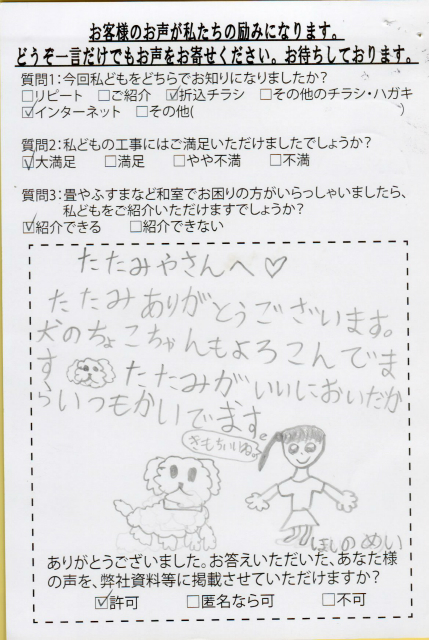 お客様のお声が私たちの励みになります。
どうぞ一言だけでもお声をお寄せください。お待ちしております。
質問1:今回私どもをどちらでお知りになりましたか?
□リピート □ご紹介 ☑折込チラシ □その他のチラシ・ハガキ
☑インターネット □その他( )
質問2:私どもの工事にはご満足いただけましたでしょうか?
☑大満足 □満足 □やや不満 □不満
質問3:畳やふすまなど和室でお困りの方がいらっしゃいましたら、
私どもをご紹介いただけますでしょうか?
☑紹介できる □紹介できない
たたみやさんへ♡
たたみありがとうございます。
犬のちょこちゃんもよろこんでま
す たたみがいいにおいだか
らいつもかいでます。
きもちいいね。
ほしの めい
ありがとうございました。お答えいただいた、あなた様
の声を、弊社資料等に掲載させていただけますか?
☑許可 □匿名なら可 □不可